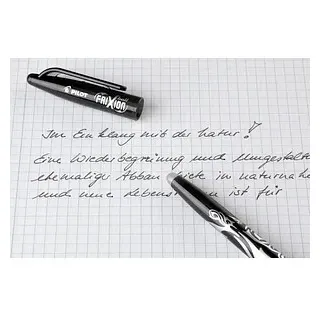 PILOT FRIXION
Im Einklang mit der Natur!
Eine Wiederbegrünung und Umgestalt
ehemaliger Abbau iete in naturnahe
und neue Lebens en ist für